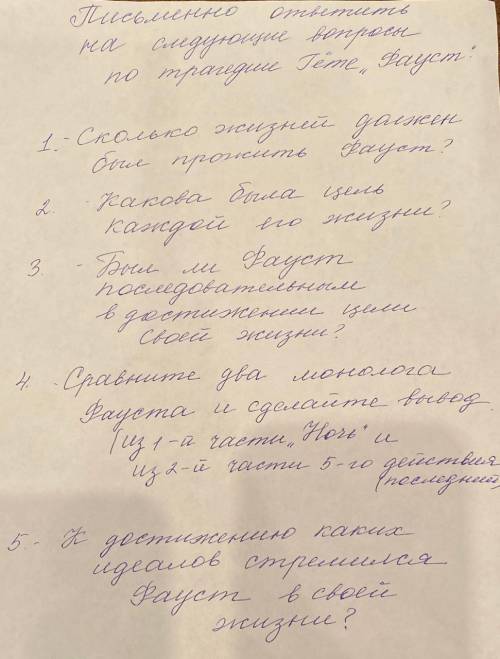 Письменно ответить
на следующие вопросы
по трагедии Гёте „Фауст".
1.- Сколько жизней должен
был прожить Фауст?
2. - Какова была цель
каждой его жизни?
3. - Был ли Фауст
последовательным
в достижении цели
своей жизни?
4. - Сравните два монолога
Фауста и сделайте вывод
(из 1-й части „Ночь" и
из 2-й части 5-го действия
(последний)
5. - К достижению каких
идеалов стремился
Фауст в своей
жизни?